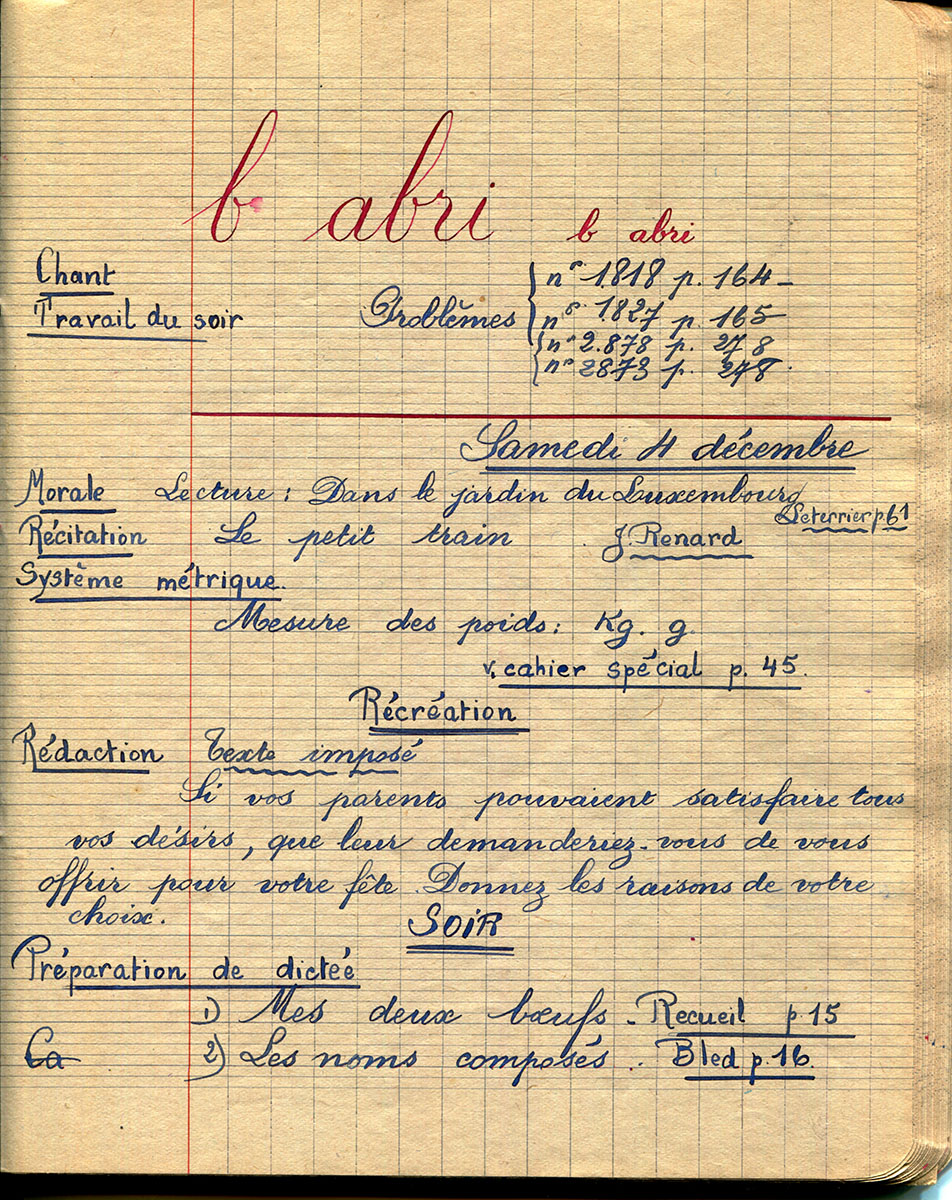 b abri b abri
Chant
Travail du soir Problèmes
n° 1818 p. 164 -
n° 1827 p. 165
n° 2.878 p. 278
n° 2873 p. 278.
Samedi 4 décembre
Morale Lecture : Dans le jardin du Luxembourg
Leterrier p. 61
Récitation Le petit train J Renard
Système métrique.
Mesure des poids : Kg. g.
v. cahier spécial p. 45.
Récréation
Rédaction Texte imposé
Si vos parents pouvaient satisfaire tous
vos désirs, que leur demanderiez-vous de vous
offrir pour votre fête. Donnez les raisons de votre
choix.
SOIR
Préparation de dictée
1) Mes deux bœufs - Recueil p. 15
Ca 2) Les noms composés. Bled p. 16.